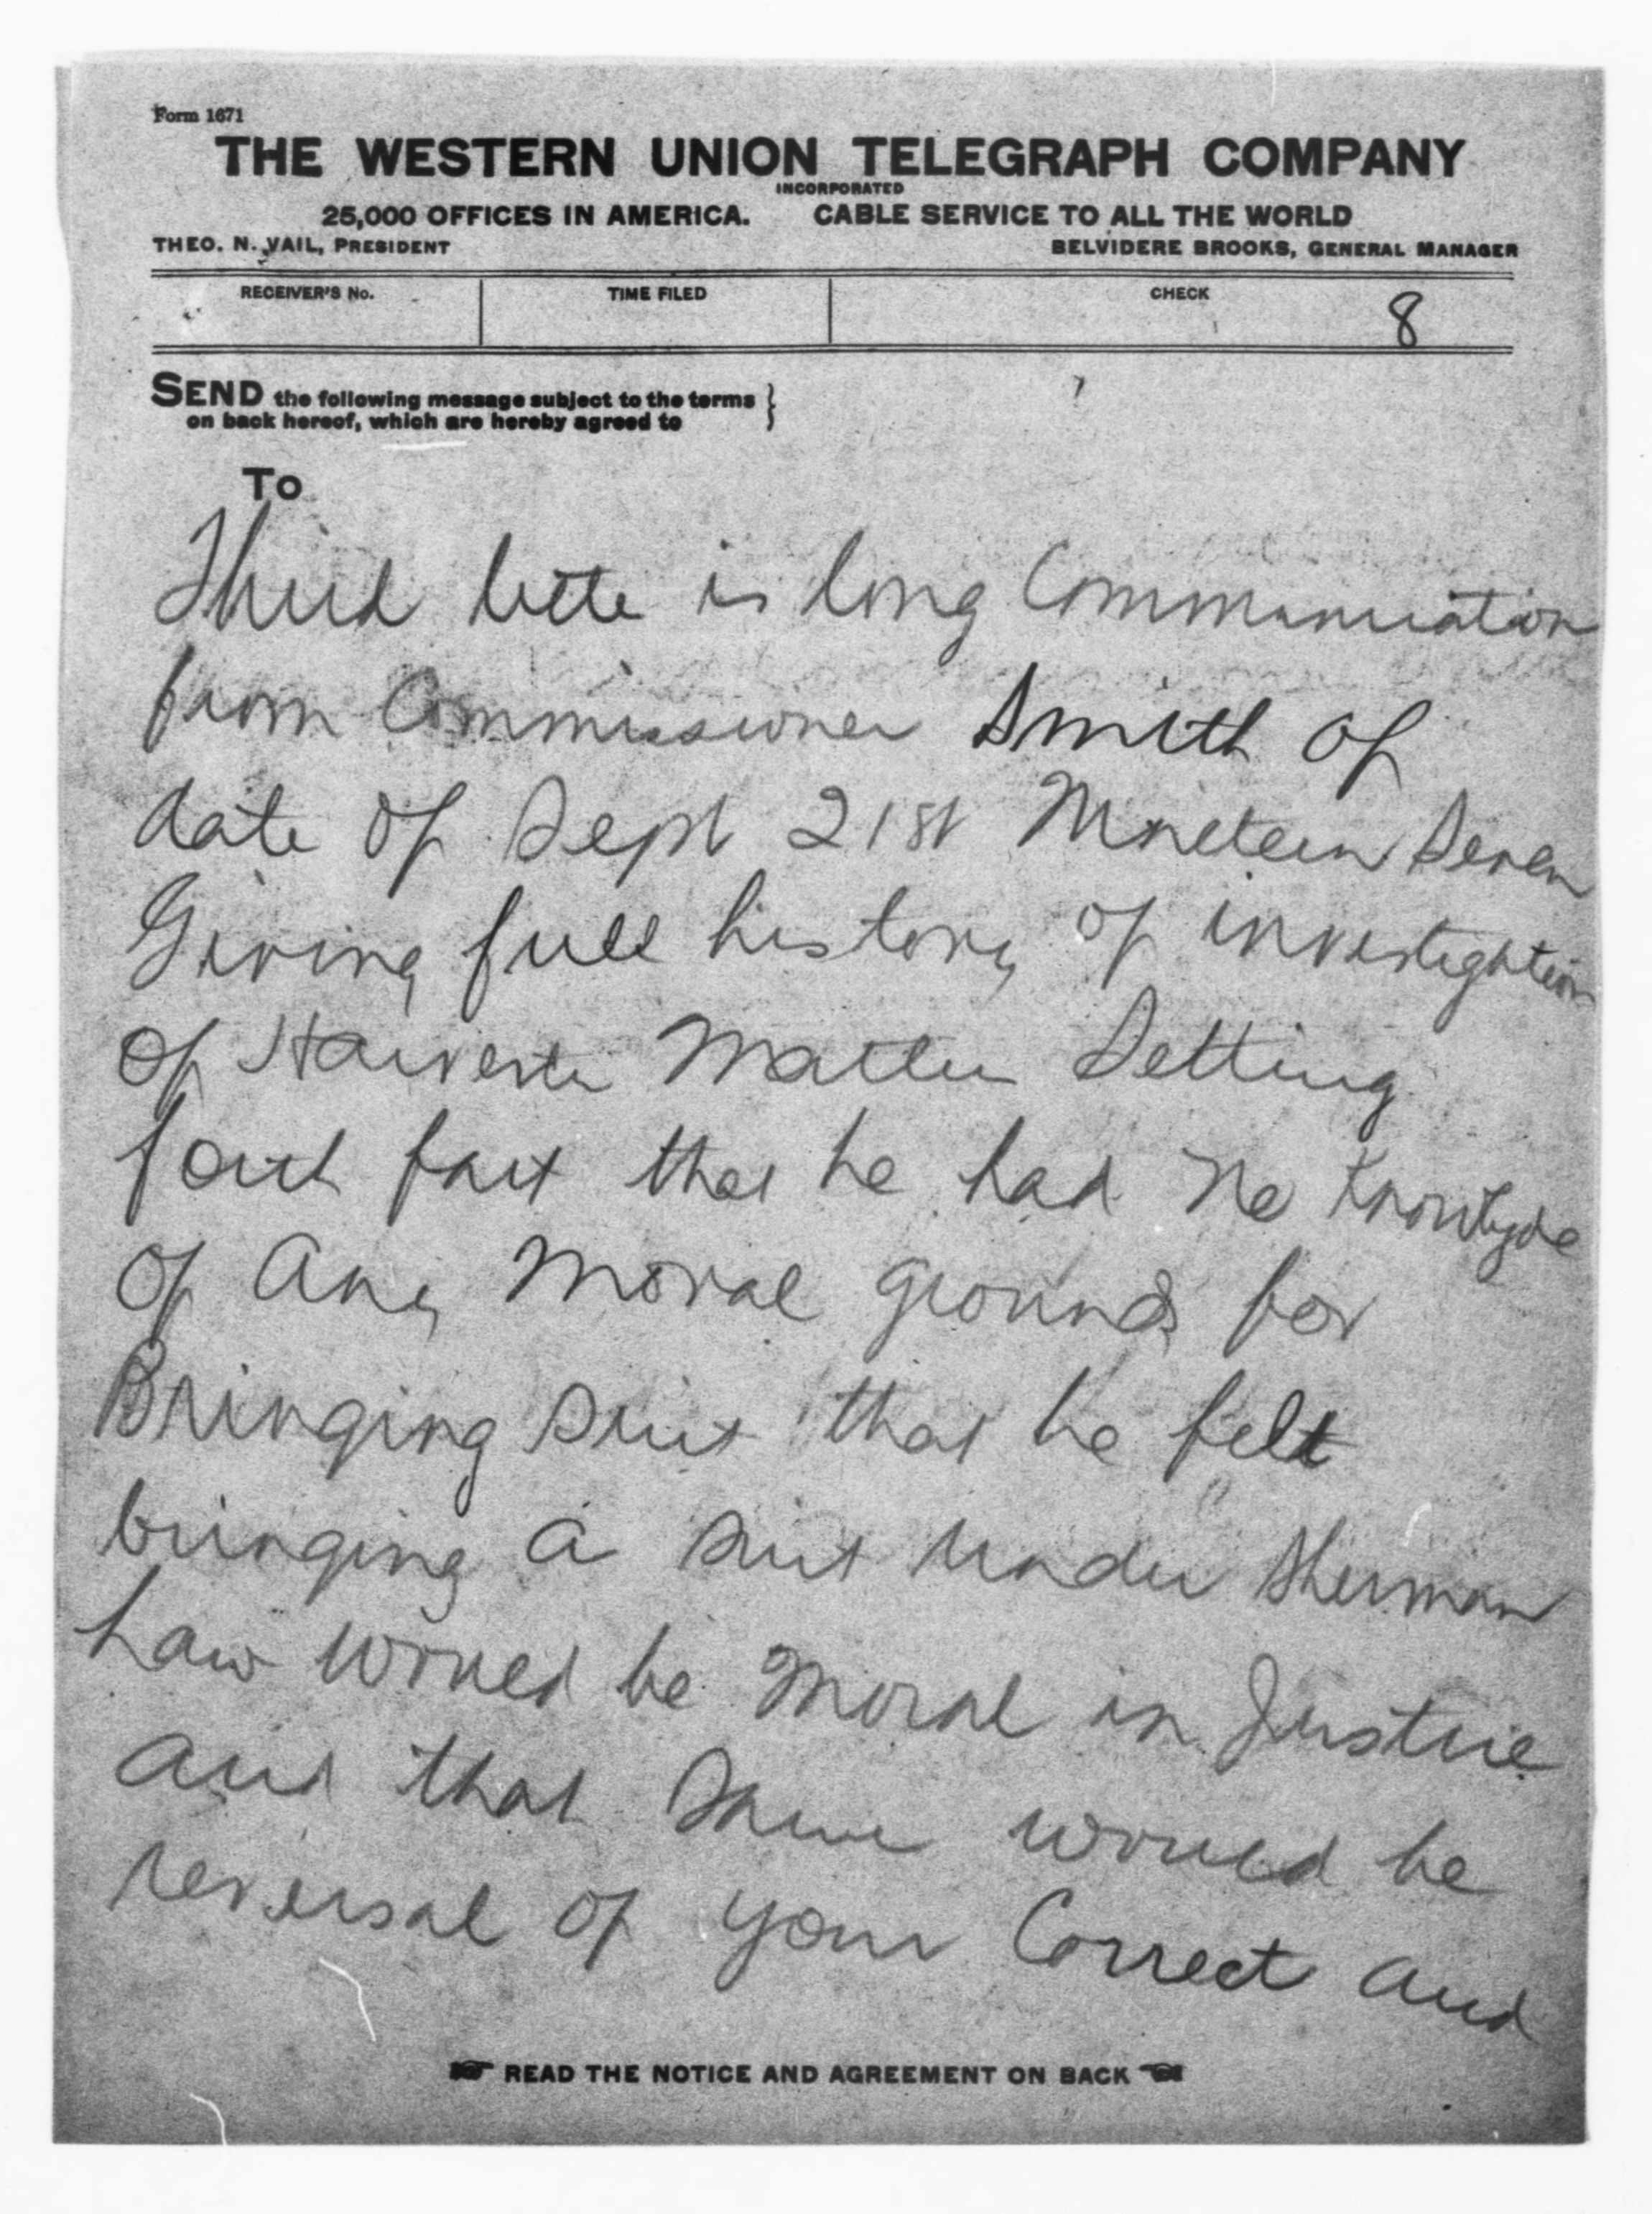 Form 1671
THE WESTERN UNION TELEGRAPH COMPANY
INCORPORATED
25,000 OFFICES IN AMERICA. CABLE SERVICE TO ALL THE WORLD
THEO. N. VAIL, PRESIDENT BELVIDERE BROOKS, GENERAL MANAGER
RECEIVER'S No. TIME FILED CHECK 8
SEND the following message subject to the terms
on back hereof, which are hereby agreed to
To
Third lette is long Communication
from Commissioner Smith of
date of Sept 21st Nineteen Seven
Giving full history of investigation
of Harvester Matter Setting
fort fact that he had no Knowlegde
of Any Moral Grounds for
Bringing Suit that he felt
bringing a Suit under Sherman
Law would be Moral in Justice
and that Same would be
reversal of your Correct and
READ THE NOTICE AND AGREEMENT ON BACK